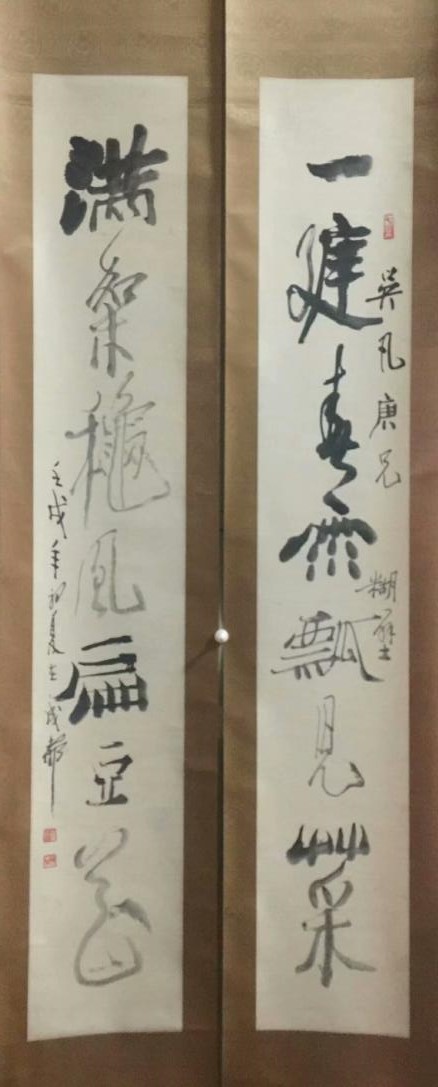 一庭春雨瓢兒菜
吴凡庚兄
糊壁
滿架穐風扁豆花
壬戌年初夏在成都